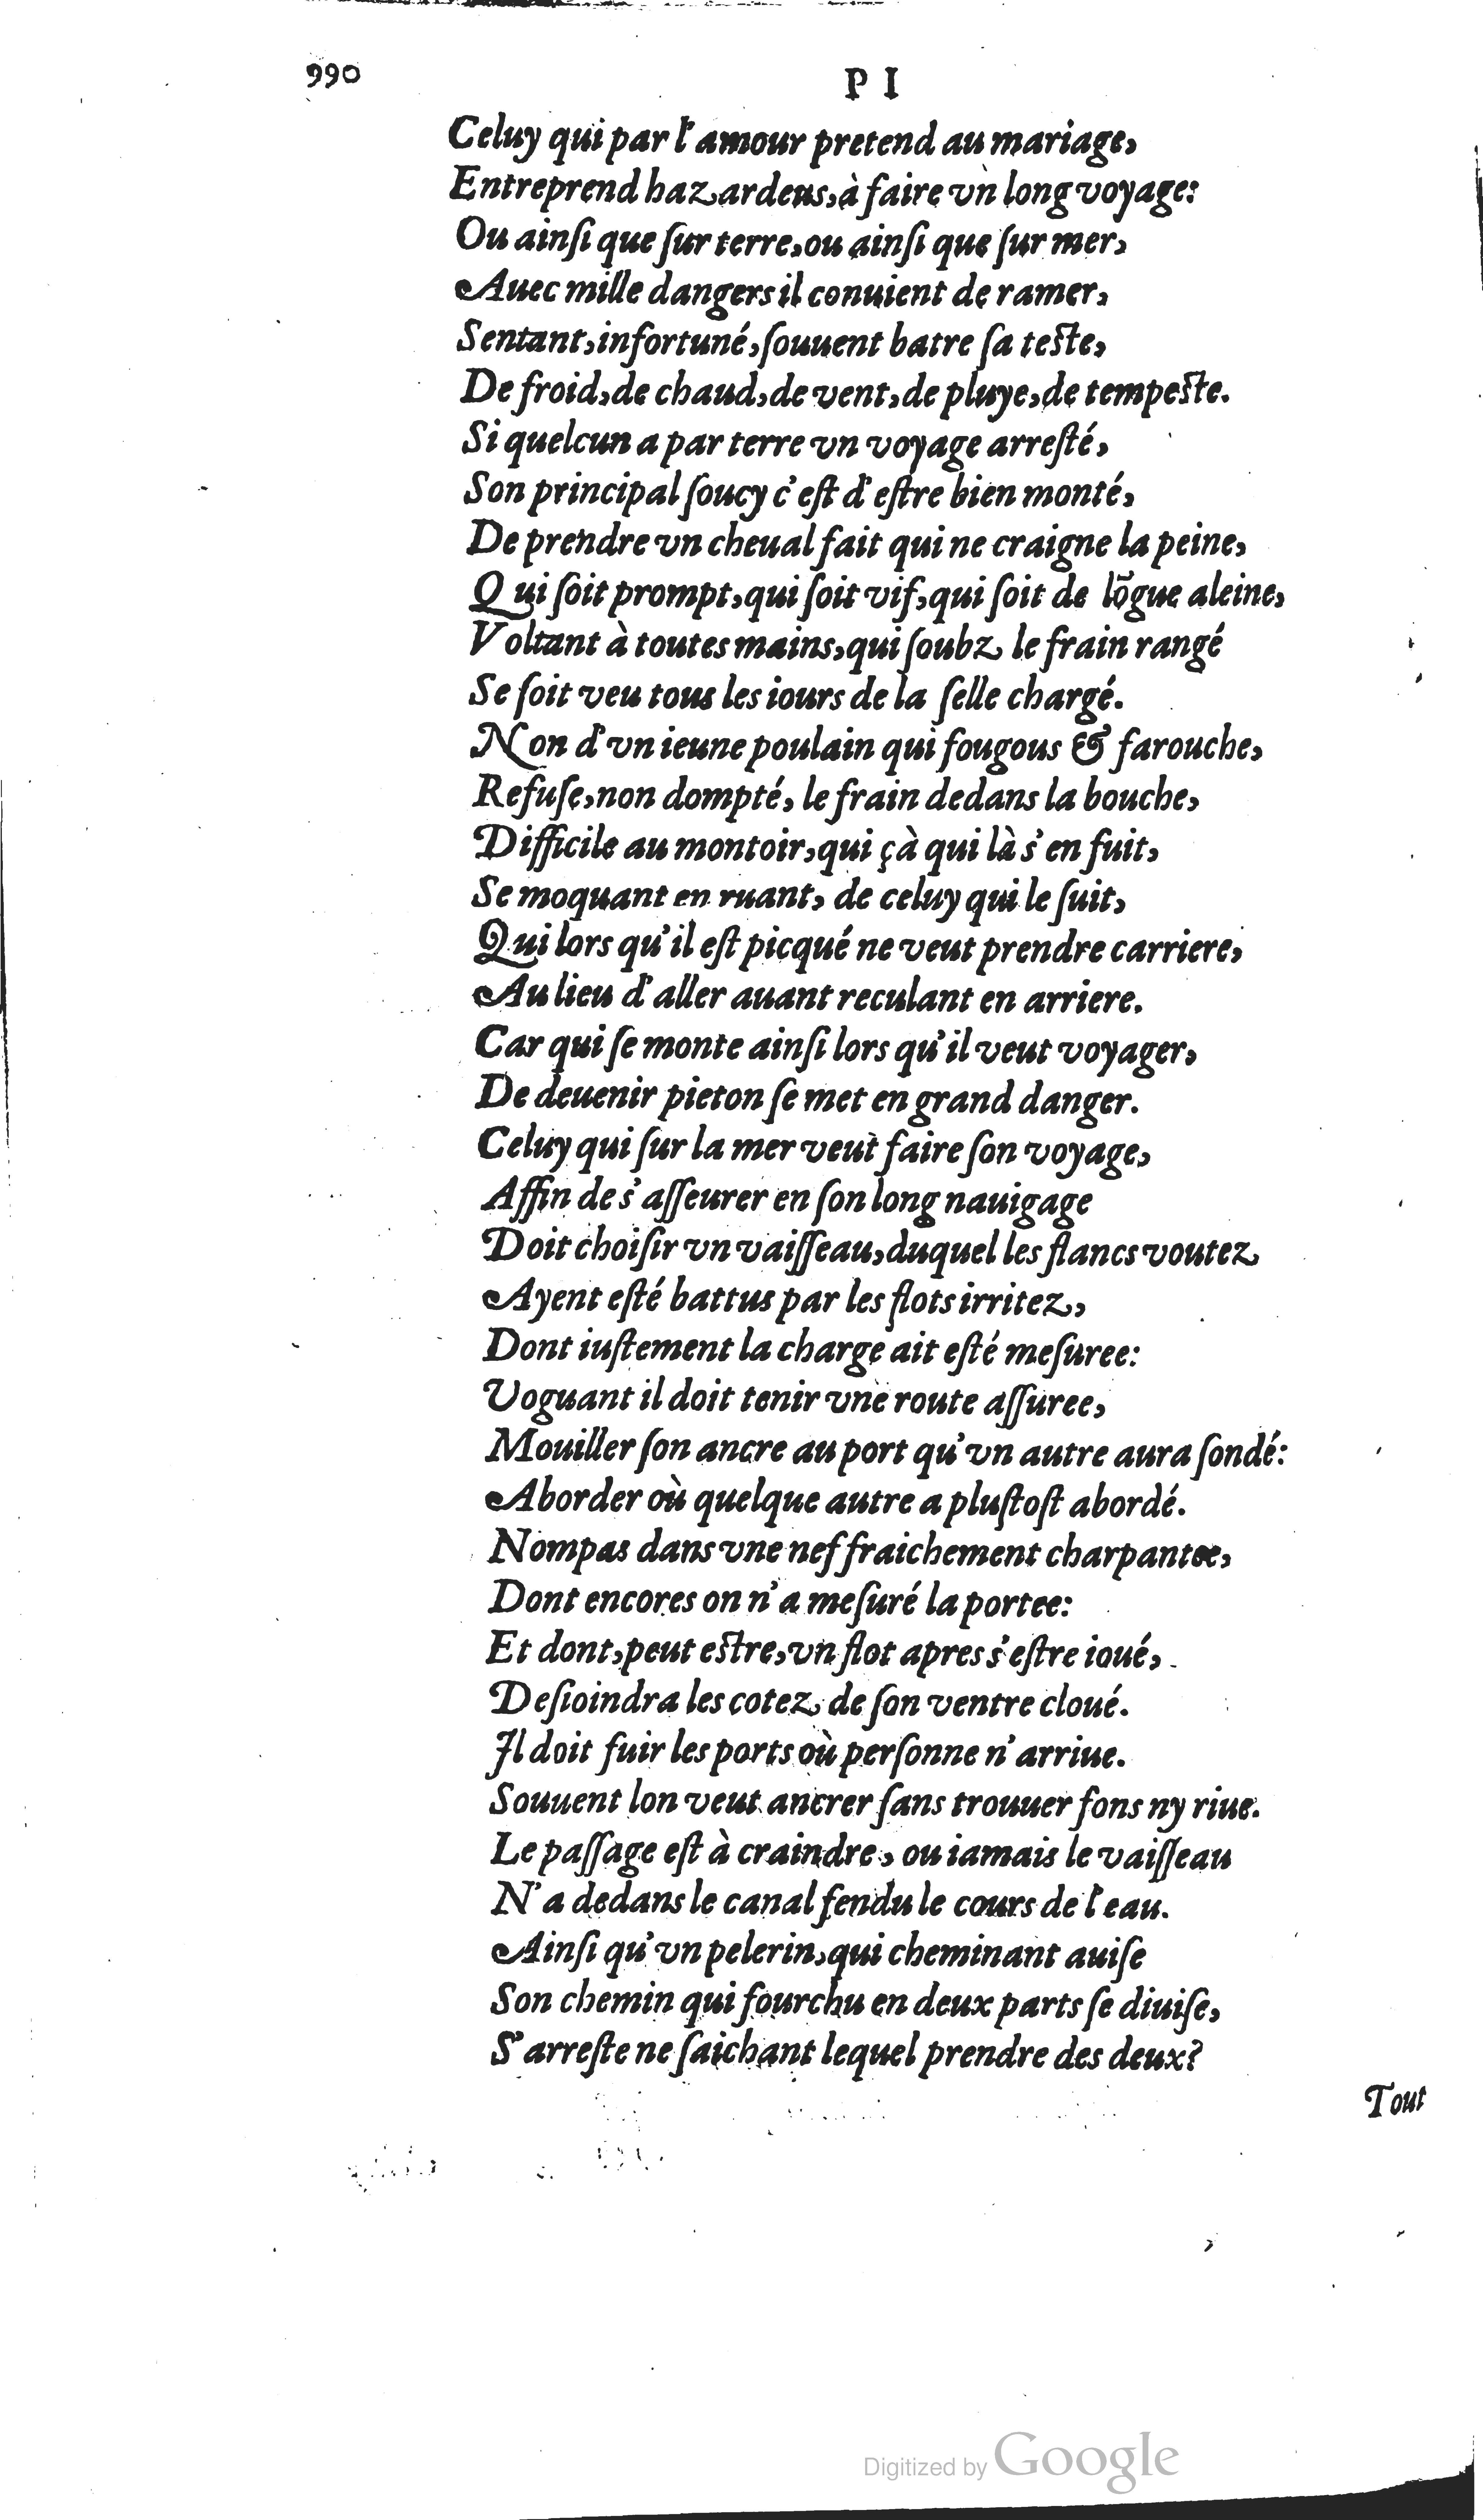 990
P I
Celuy qui par l'amour pretend au mariage,
Entreprend hazardeus, à faire vn long voyage:
Ou ainſi que ſur terre, ou ainſi que ſur mer,
Auec mille dangers il conuient de ramer,
Sentant, infortuné, ſouuent batre ſa teſte,
De froid, de chaud, de vent, de pluye, de tempeſte.
Si quelcun a par terre vn voyage arreſté,
Son principal ſoucy c'eſt d'eſtre bien monté,
De prendre vn cheual fait qui ne craigne la peine,
Qui ſoit prompt, qui ſoit vif, qui ſoit de lõgue aleine,
Voltant à toutes mains, qui ſoubz le frain rangé
Se ſoit veu tous les iours de la ſelle chargé.
Non d'vn ieune poulain qui fougous & farouche,
Refuſe, non dompté, le frain dedans la bouche,
Difficile au montoir, qui çà qui là s'en fuit,
Se moquant en ruant, de celuy qui le ſuit,
Qui lors qu'il eſt picqué ne veut prendre carriere,
Au lieu d'aller auant reculant en arriere.
Car qui ſe monte ainſi lors qu'il veut voyager,
De deuenir pieton ſe met en grand danger.
Celuy qui ſur la mer veut faire ſon voyage,
Affin de s'aſſeurer en ſon long nauigage
Doit choiſir vn vaiſſeau, duquel les flancs voutez
Ayent eſté battus par les flots irritez,
Dont iuſtement la charge ait eſté meſuree:
Voguant il doit tenir vne route aſſuree,
Mouiller ſon ancre au port qu'vn autre aura ſondé:
Aborder où quelque autre a pluſtoſt abordé.
Nompas dans vne nef fraichement charpantee,
Dont encores on n'a meſuré la portee:
Et dont, peut eſtre, vn flot apres s'eſtre ioué,
Deſioindra les cotez de ſon ventre cloué.
Il doit fuir les ports où perſonne n'arriue.
Souuent lon veut ancrer ſans trouuer fons ny riue.
Le paſſage eſt à craindre, ou iamais le vaiſſeau
N'a dedans le canal fendu le cours de l'eau.
Ainſi qu'vn pelerin, qui cheminant auiſe
Son chemin qui fourchu en deux parts ſe diuiſe,
S'arreſte ne ſaichant lequel prendre des deux?
Tout
Digitized by Google